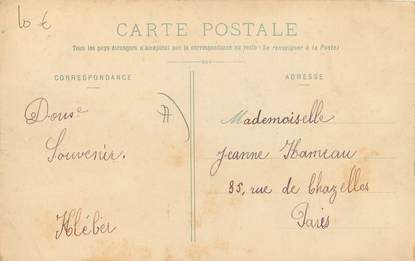 10 €
CARTE POSTALE
Tous les pays étrangers n'acceptent pas la correspondance au recto (Se renseigner à la Poste)
CORRESPONDANCE
ADRESSE
Souvenir.
Kléber
Mademoiselle
Jeanne Hameau
35, rue de Chazelles
Paris